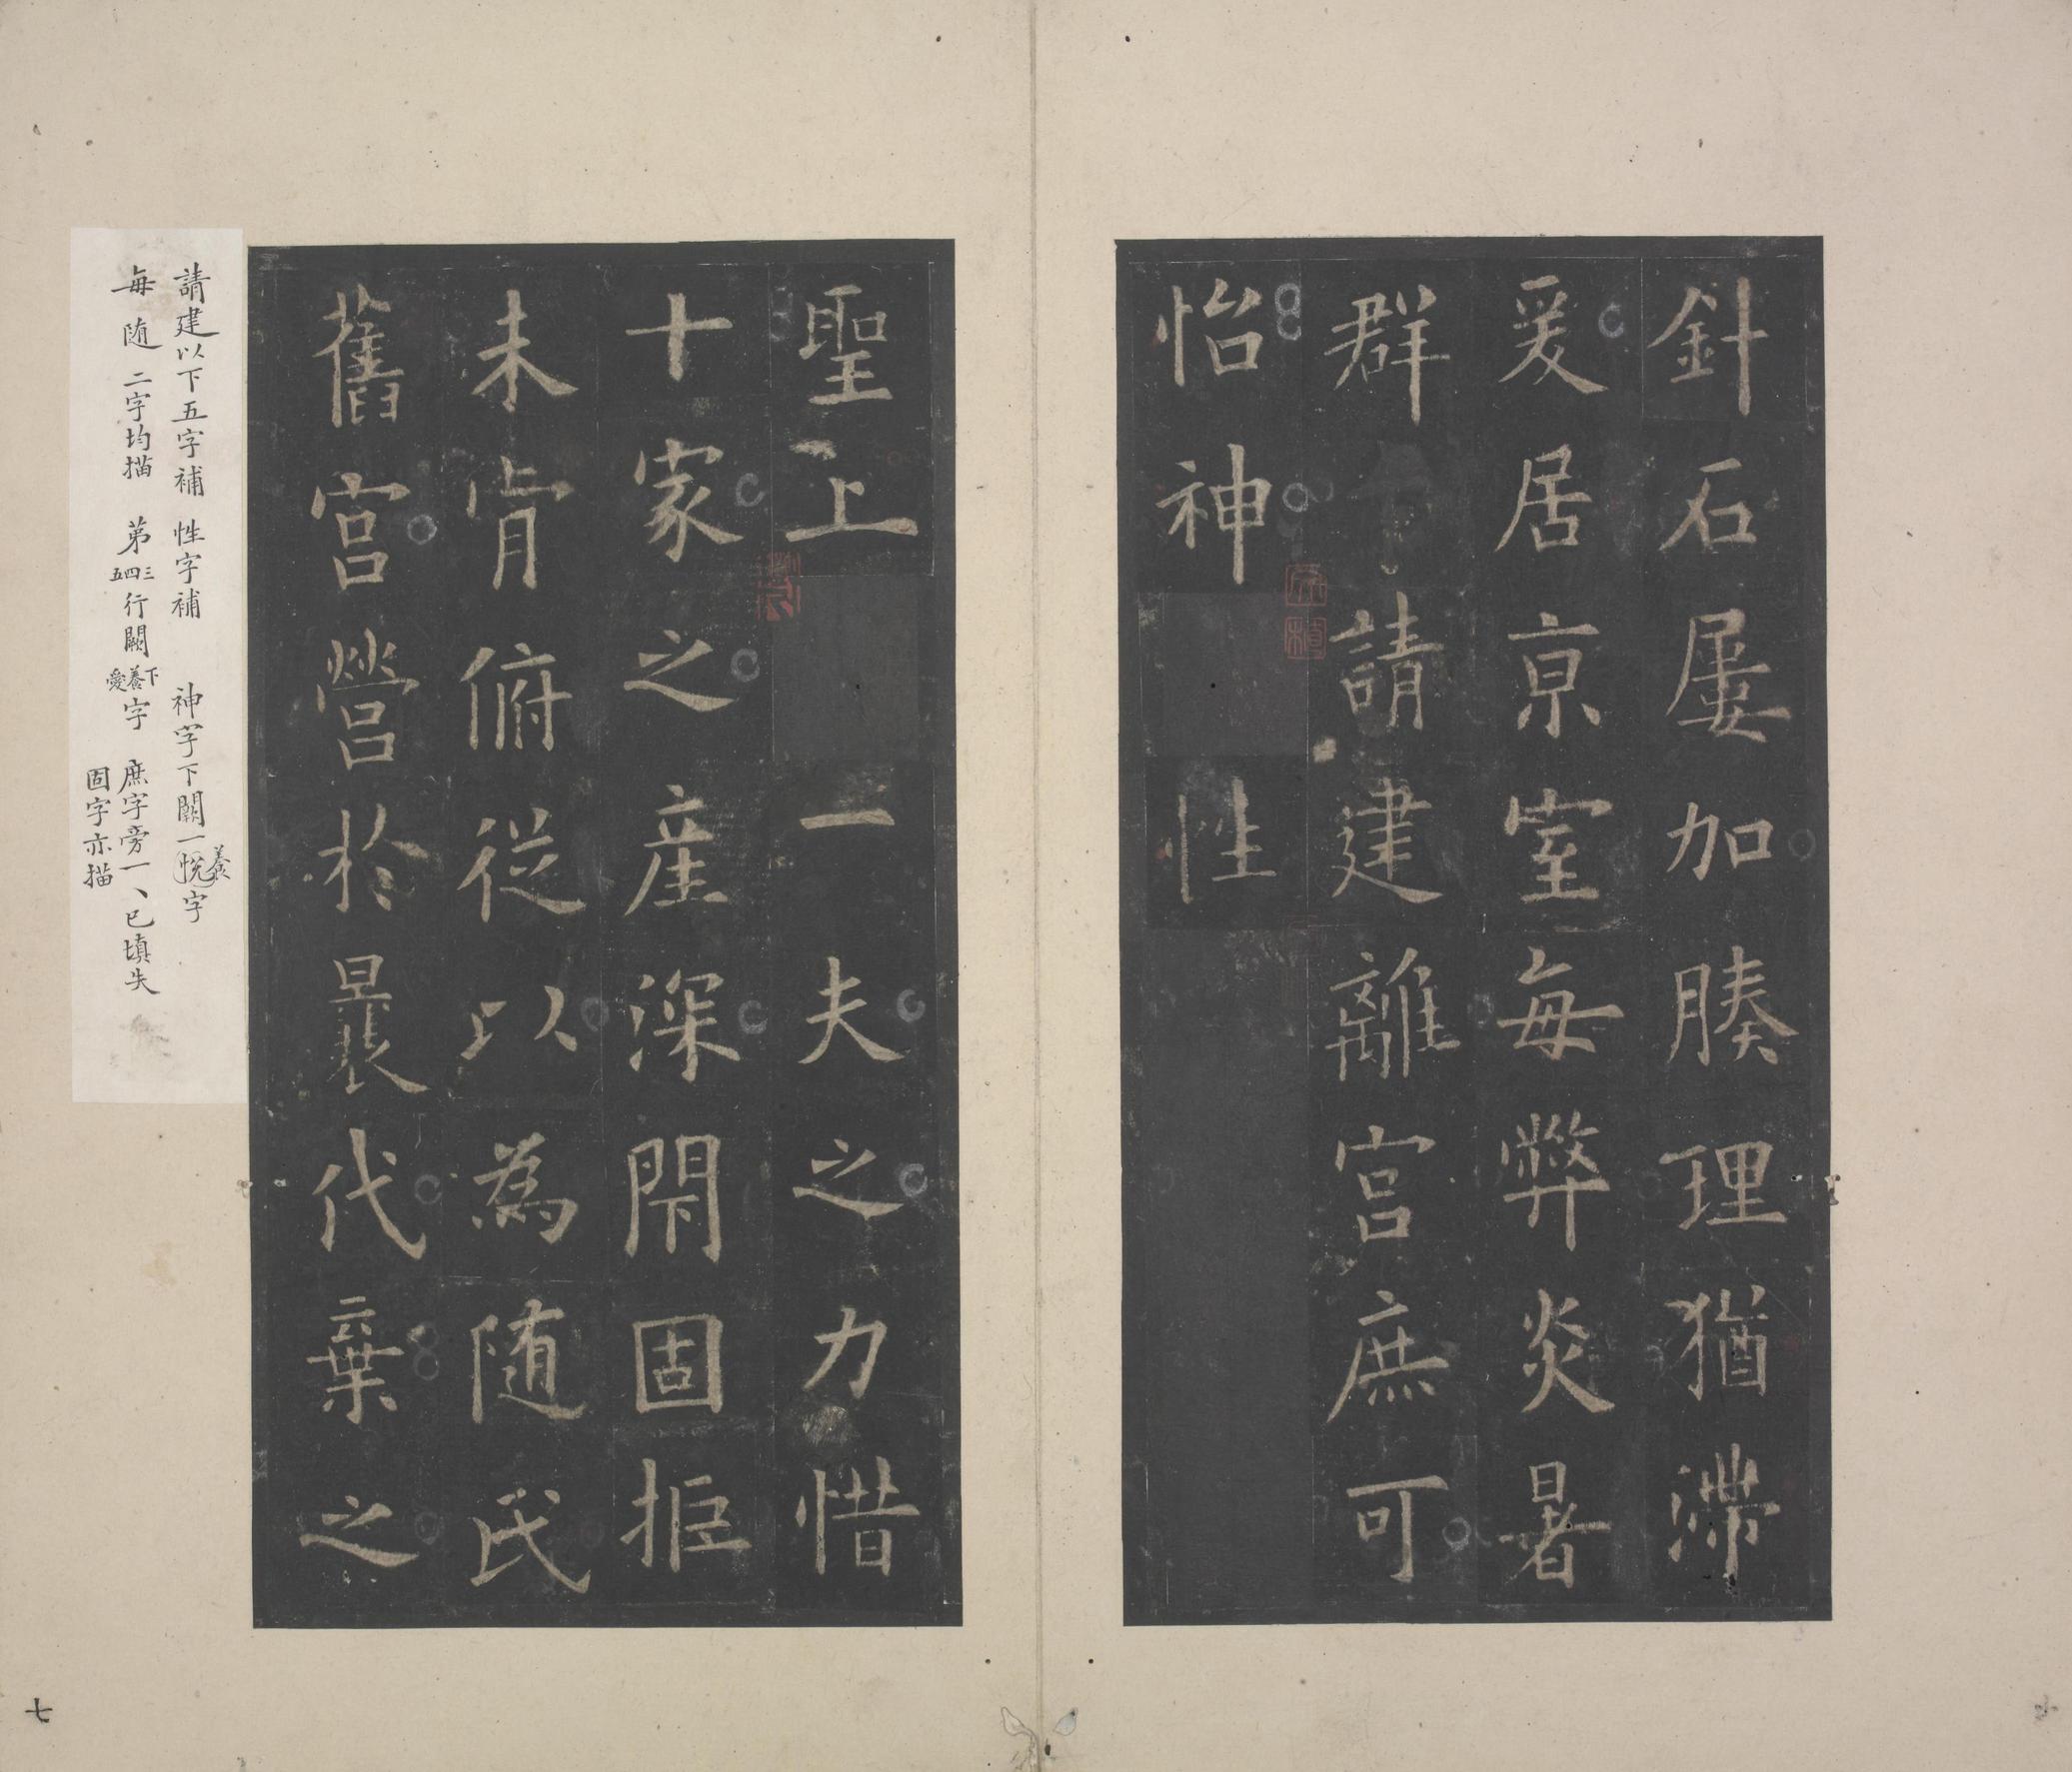 針石屢加腠理猶滯
爰居京室毎弊炎暑
群請建離宮庶可
怡神性
聖上一夫之力惜
十家之産深閇固拒
未肯俯從以為随氏
舊宮營於曩代棄之
請建以下五字補 性字補 神字下闕一悅養字
毎随二字均描 第三四五行闕下養愛字 庶字旁一丶已填失
固字亦描
七